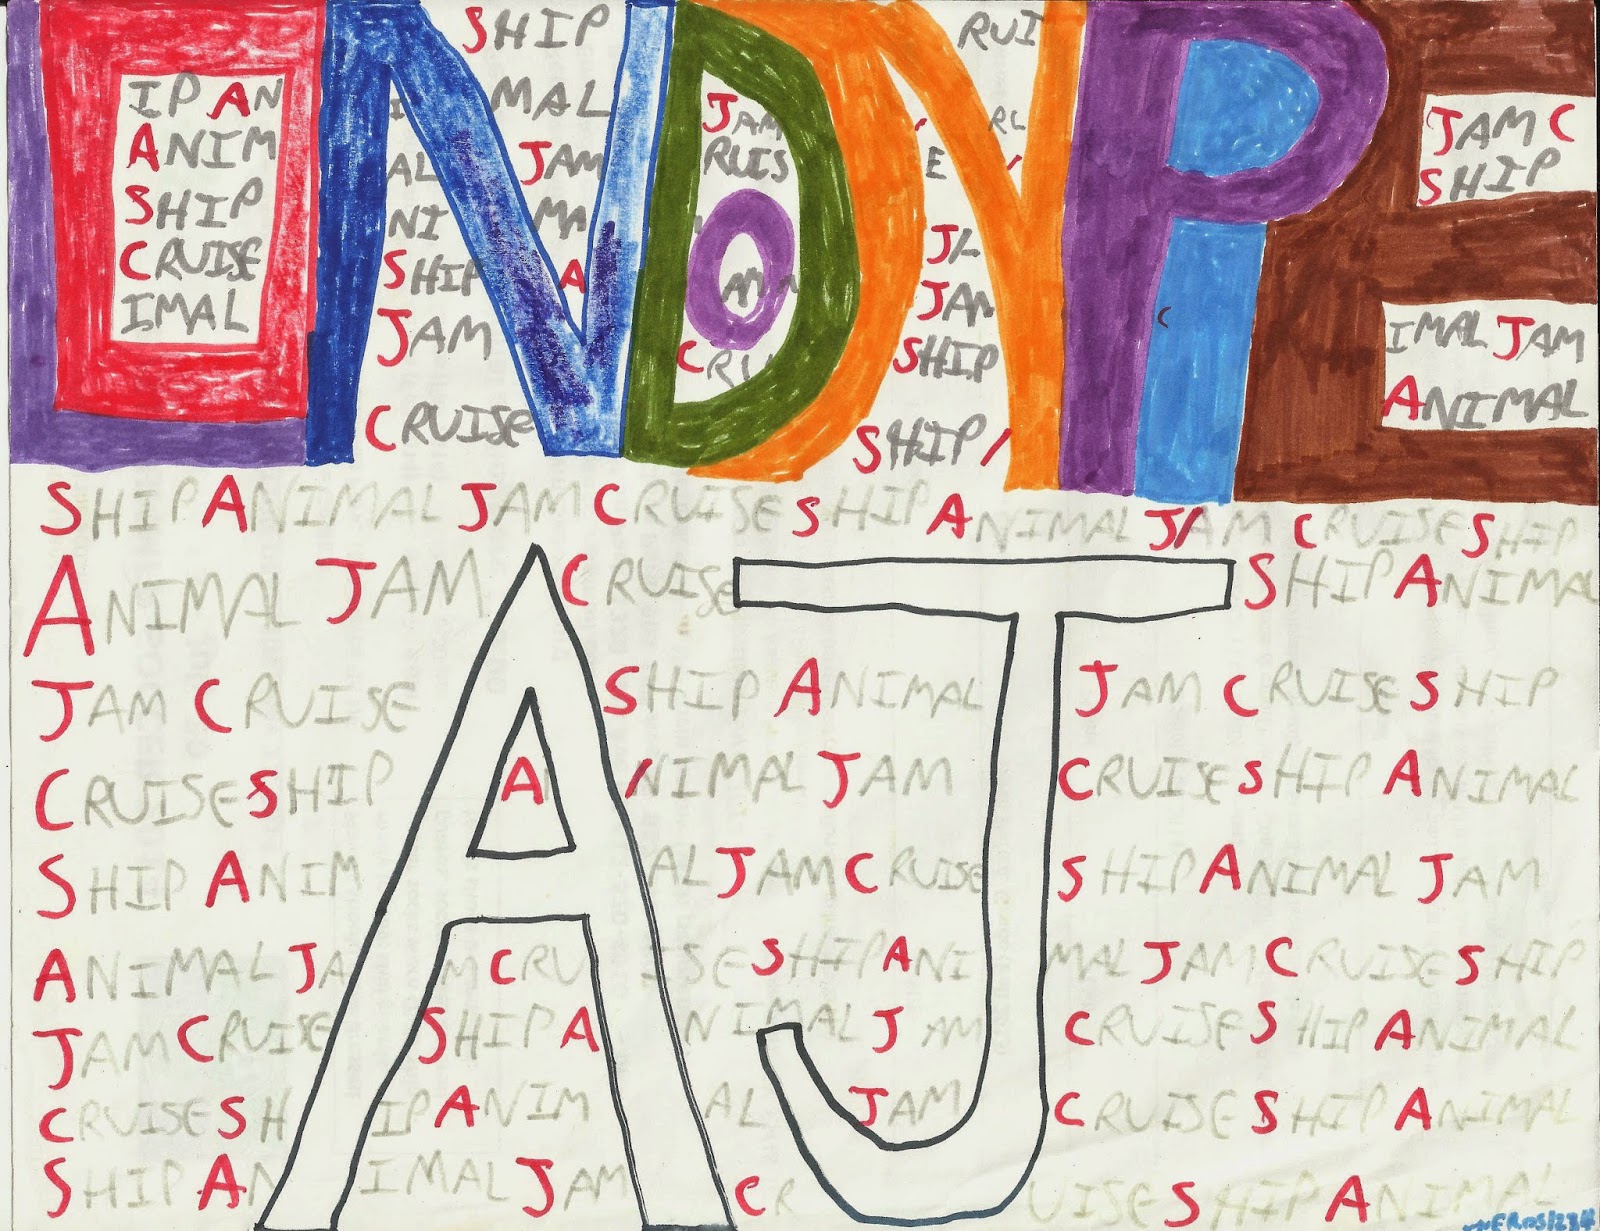 LONDONPE
SHIP RUI
IP AN MAL JAM JAM C
ANIM AL JAM RUIS E SHIP
SHIP NI MA JA
CRUISE SHIP A JAM
IMAL JAM CRU SHIP IMAL JAM
CRUISE SHIP ANIMAL
SHIP ANIMAL JAM CRUISE SHIP ANIMAL JAM CRUISE SHIP
ANIMAL JAM CRUISE SHIP ANIMAL
AJ
JAM CRUISE SHIP ANIMAL JAM CRUISE SHIP
CRUISE SHIP AN NIMAL JAM CRUISE SHIP ANIMAL
SHIP ANIM AL JAM CRUISE SHIP ANIMAL JAM
ANIMAL JA M CRU ISE SHIP ANI MAL JAM CRUISE SHIP
JAM CRUISE SHIP A NIMAL JAM CRUISE SHIP ANIMAL
CRUISE SH IP ANIM AL JAM CRUISE SHIP ANIMAL
SHIP AN IMAL JAM CR UISE SHIP ANIMAL